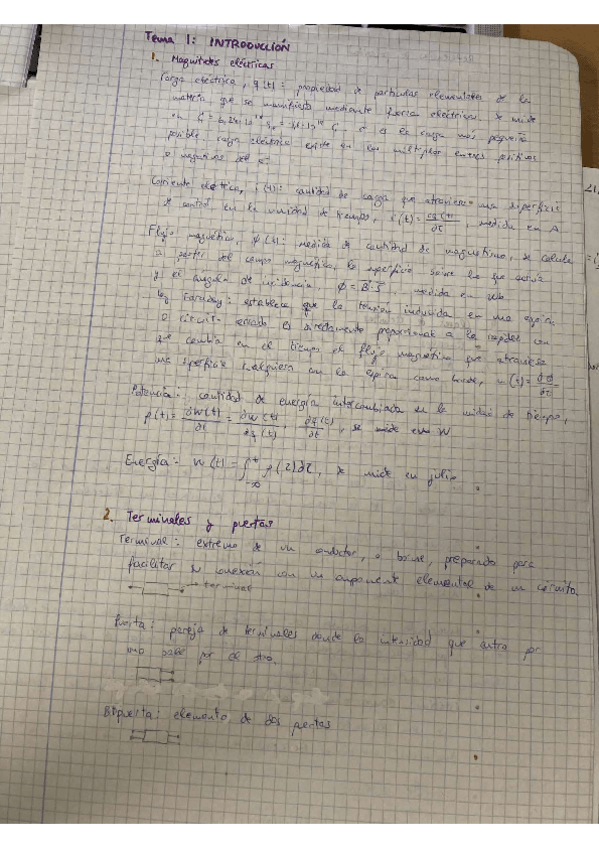 Tema 1: INTRODUCCIÓN
1. Magnitudes eléctricas
Carga eléctrica, q(t): propiedad de partículas elementales de la
materia, que se manifiesta mediante fuerzas eléctricas. Se mide
en C = 6,24·10¹⁸ C, e⁻ es la carga más pequeña
posible carga eléctrica existe en los múltiplos enteros positivos
o negativos del e⁻
Corriente eléctrica, i(t): cantidad de carga que atraviesa una superficie
de control en la unidad de tiempo, i(t) = ∂q(t)/∂t, medida en A
Flujo magnético, ϕ(t): medida de cantidad de magnetismo, se calcula
a partir del campo magnético, la superficie sobre la que actúa
y el ángulo de incidencia, ϕ = B·S medida en wb
Ley Faraday: establece que la tensión inducida en una espira
o circuito cerrado es directamente proporcional a la rapidez con
que cambia en el tiempo el flujo magnético que atraviesa
una superficie cualquiera con la espira como borde, u(t) = ∂ϕ/∂t
Potencia: cantidad de energía intercambiada en la unidad de tiempo,
p(t) = ∂w(t)/∂t = ∂w(t)/∂q(t) · ∂q(t)/∂t, se mide en W
Energía: w(t) = ∫₋∞ᵗ p(τ)∂τ, se mide en julio
2. Terminales y puertas
Terminal: extremo de un conductor, o borne, preparado para
facilitar su conexión con un componente elemental de un circuito.
terminal
Puerta: pareja de terminales donde la intensidad que entra por
uno sale por el otro.
Bipuerta: elemento de dos puertas